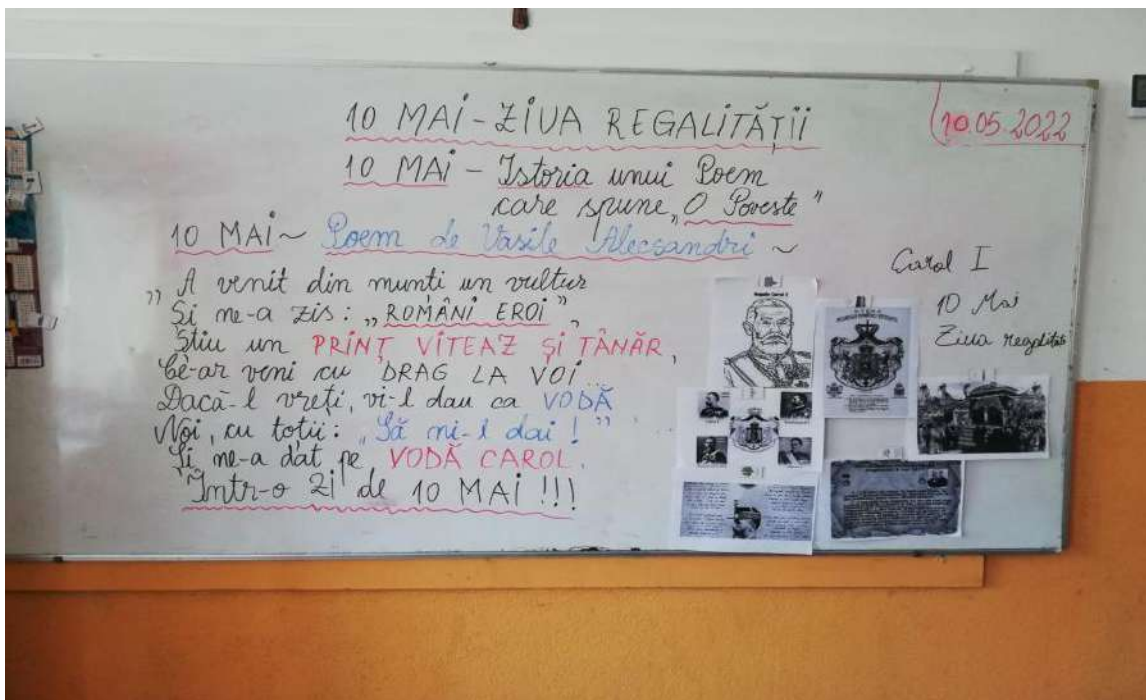 10 MAI - ZIUA REGALITĂȚII
10.05.2022
10 MAI - Istoria unui Poem
care spune „O Poveste"
10 MAI ~ Poem de Vasile Alecsandri ~
„A venit din munti un vultur
Și ne-a zis: „ROMÂNI EROI",
Știu un PRINȚ VITEAZ ȘI TÂNĂR,
Ce-ar veni cu DRAG LA VOI...
Dacă-l vreți, vi-l dau ca VODĂ
Noi, cu toții: „Să ni-l dai!"...
Și ne-a dat pe VODĂ CAROL.
Într-o zi de 10 MAI!!!
Carol I
10 Mai
Ziua regalității
Regele Carol I